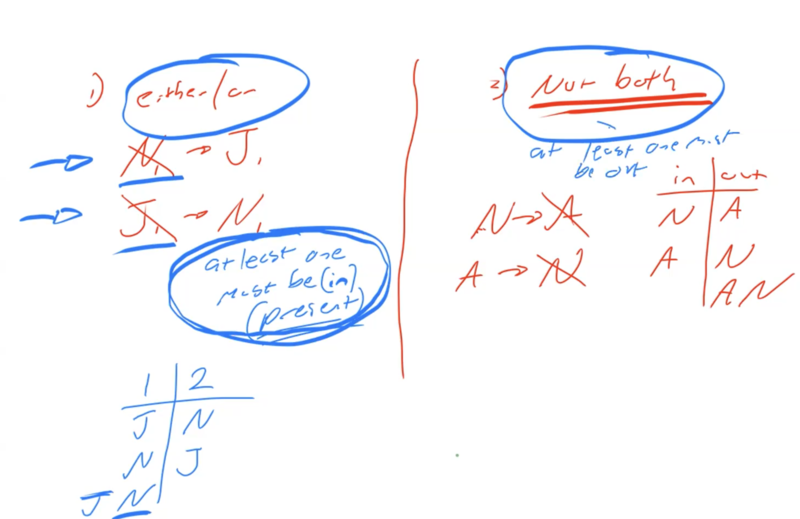 1) either/or
N₁ → J₁
J₁ → N₁
at least one
must be (in)
(present)
1 | 2
J | N
N | J
J N |
2) Not both
at least one must
be out
N → A
A → N
in | out
N | A
A | N
| A N